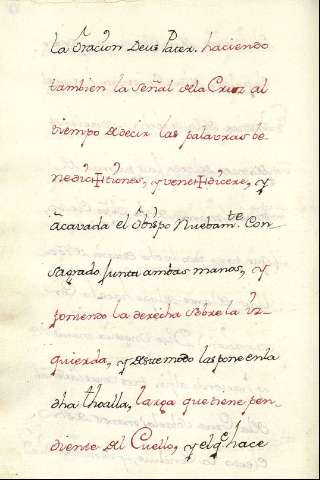 la Oracion Deus Pater. haciendo
tambien la señal dela Cruz al
tiempo de decir las palavras be-
nedic✠tiones, y vene✠dicere, y
acavada el Obispo Nuebam.te Con-
sagrado junta ambas manos, y
poniendo la derecha sobre la iz-
quierda, y de este modo las pone en la
dha thoalla, larga que tiene pen-
diente del Cuello, y el q.e hace